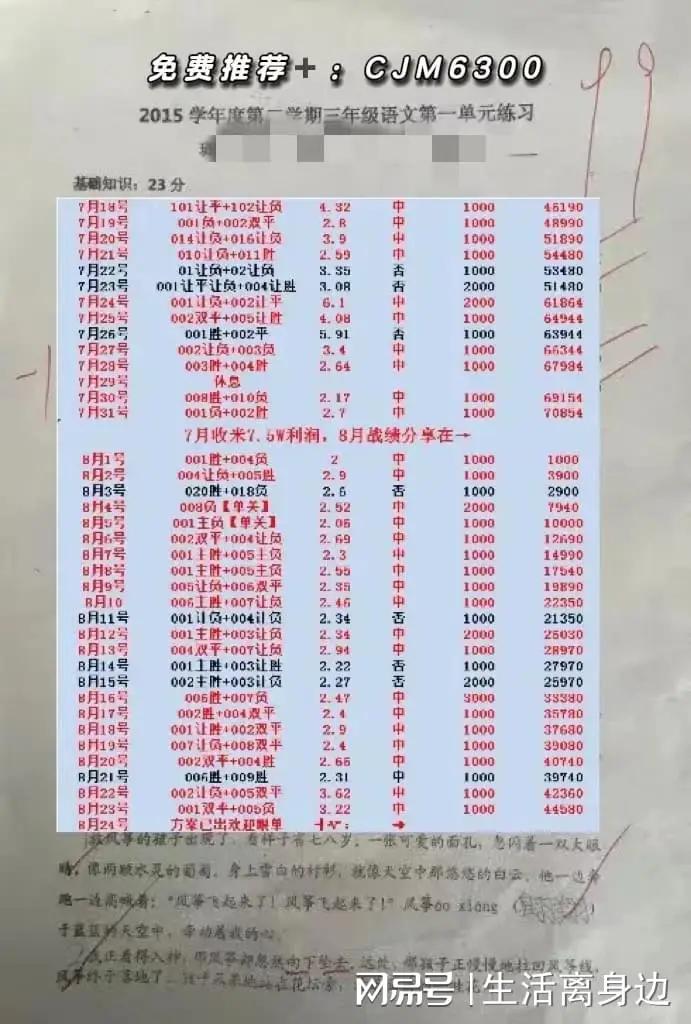 免费推荐+：CJM6300
2015 学年度第二学期三年级语文第一单元练习
班
基础知识：23 分
7月18号 101让平+102让负 4.32 中 1000 46190
7月19号 001负+002双平 2.8 中 1000 48990
7月20号 014让负+016让负 3.9 中 1000 51890
7月21号 010让负+011胜 2.59 中 1000 54480
7月22号 01让负+02让负 3.35 否 1000 53480
7月23号 001让平让负+004让胜 3.08 否 2000 51480
7月24号 001让负+002让平 6.1 中 2000 61864
7月25号 002双平+005让胜 4.08 中 1000 64944
7月26号 001胜+002平 5.91 否 1000 63944
7月27号 002让负+003负 3.4 中 1000 66344
7月28号 003胜+004胜 2.64 中 1000 67984
7月29号 休息
7月30号 008胜+010负 2.17 中 1000 69154
7月31号 001负+002胜 2.7 中 1000 70854
7月收米7.5W利润，8月战绩分享在→
8月1号 001胜+004负 2 中 1000 1000
8月2号 004让负+005胜 2.9 中 1000 3900
8月3号 020胜+018负 2.6 否 1000 2900
8月4号 008负【单关】 2.52 中 2000 7940
8月5号 001主负【单关】 2.06 中 1000 10000
8月6号 002双平+004让负 2.69 中 1000 12690
8月7号 001主胜+005主负 2.3 中 1000 14990
8月8号 001主胜+005主负 2.55 中 1000 17540
8月9号 005让负+006双平 2.35 中 1000 19890
8月10 006主胜+007让负 2.46 中 1000 22350
8月11号 001让负+004让负 2.34 否 1000 21350
8月12号 001主胜+003让负 2.34 中 2000 26030
8月13号 004双平+007让负 2.94 中 1000 28970
8月14号 001主胜+003让胜 2.22 否 1000 27970
8月15号 002主胜+003让负 2.27 否 2000 25970
8月16号 006胜+007负 2.47 中 3000 33380
8月17号 002胜+004双平 2.4 中 1000 35780
8月18号 001让胜+002双平 2.9 中 1000 37680
8月19号 007让负+008双平 2.4 中 1000 39080
8月20号 002双平+004胜 2.66 中 1000 40740
8月21号 006胜+009胜 2.31 中 1000 39740
8月22号 002让负+005双平 3.62 中 1000 42360
8月23号 001双平+005负 3.22 中 1000 44580
8月24号 方案已出欢迎跟单 +v： →
放风筝的孩子出现了，看样子有七八岁，一张可爱的面孔，忽闪着一双大眼
睛，像两颗水灵的葡萄，身上雪白的衬衫，就像天空中那悠悠的白云。他一边奔
跑一边高喊着："风筝飞起来了！风筝飞起来了！"风筝 xiàng（ ）
于蓝蓝的天空中，牵动着我的心。
我正看得入神，那风筝却忽然向下坠去。远处，那孩子正慢慢地拉回风筝线，
风筝终于落地了。 花坛旁，
网易号 | 生活离身边